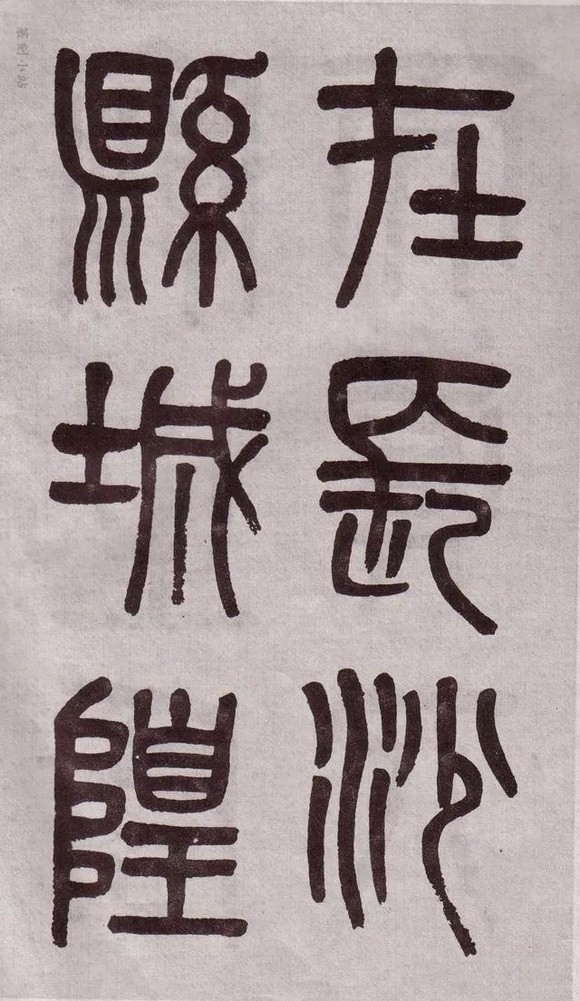 在長沙
縣城隍